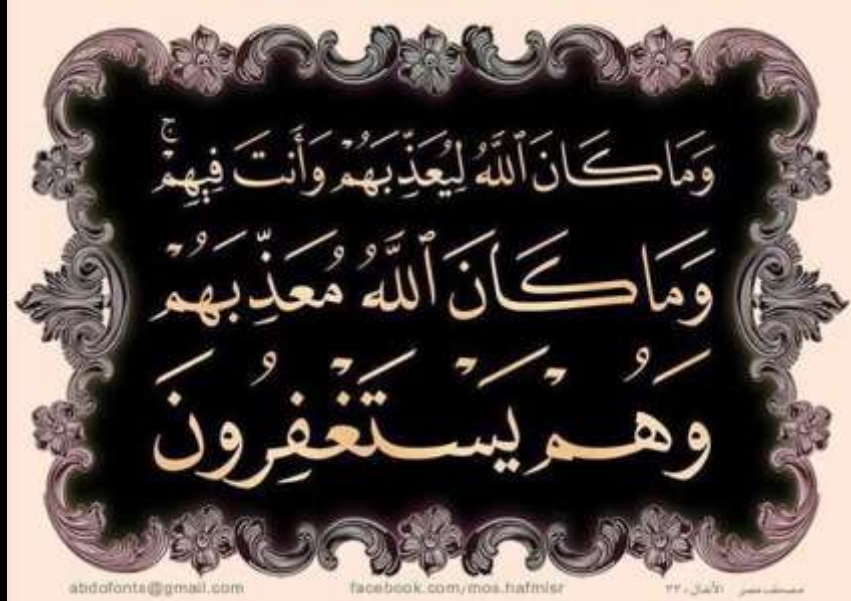 وَمَا كَانَ ٱللَّهُ لِيُعَذِّبَهُمْ وَأَنتَ فِيهِمْۚ
وَمَا كَانَ ٱللَّهُ مُعَذِّبَهُمْ
وَهُمْ يَسْتَغْفِرُونَ
abdofonts@gmail.com facebook.com/mos.hafmisr مصحف مصر الأنفال ٣٣